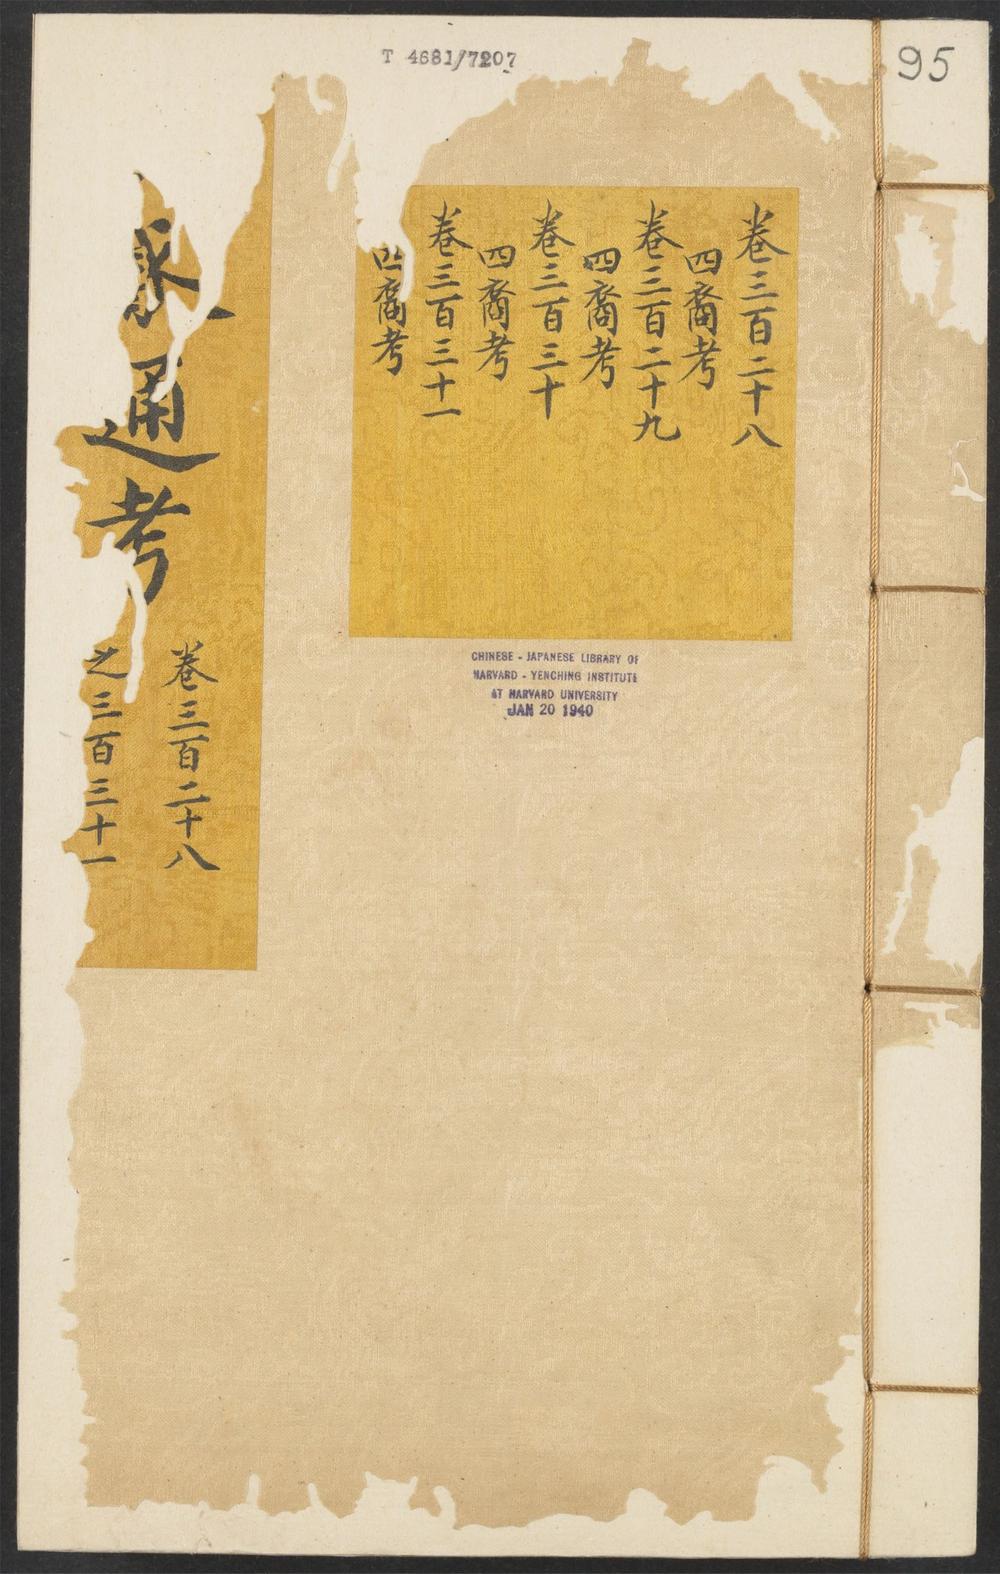 T 4681/7207
95
卷三百二十八
四裔考
卷三百二十九
四裔考
卷三百三十
四裔考
卷三百三十一
四裔考
CHINESE - JAPANESE LIBRARY OF
HARVARD - YENCHING INSTITUTE
AT HARVARD UNIVERSITY
JAN 20 1940
通考
卷三百二十八
之三百三十一